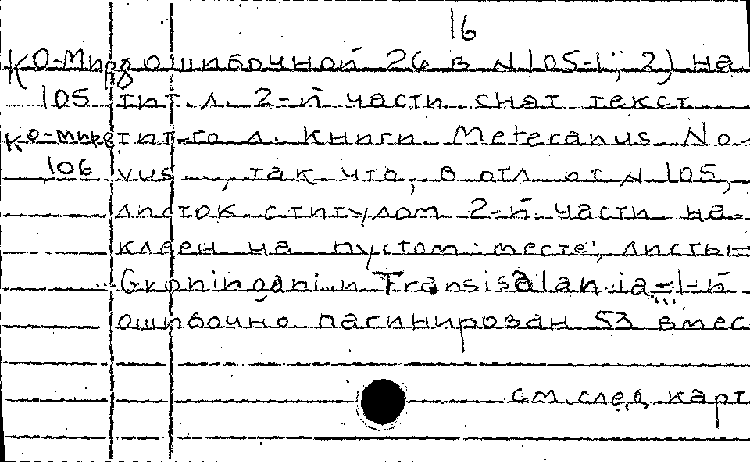 16
КО-Мирд ошибочной 26 в N 105-1; 2) на
105 тит. л. 2-й части снят текст
КО-мире тит-го л. книги Meteranus No-
106 vus , так что, в отл. от N 105,
листок с титулом 2-й части на-
клеен на пустом месте; листы
Groningani и Transisalania 1-й
ошибочно пагинирован 53 вмес
см. след. карт